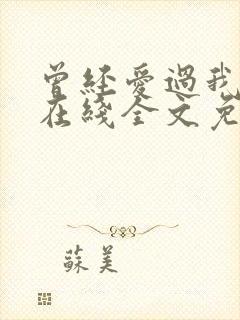 曾經愛過我
在綫全文免
蘇美